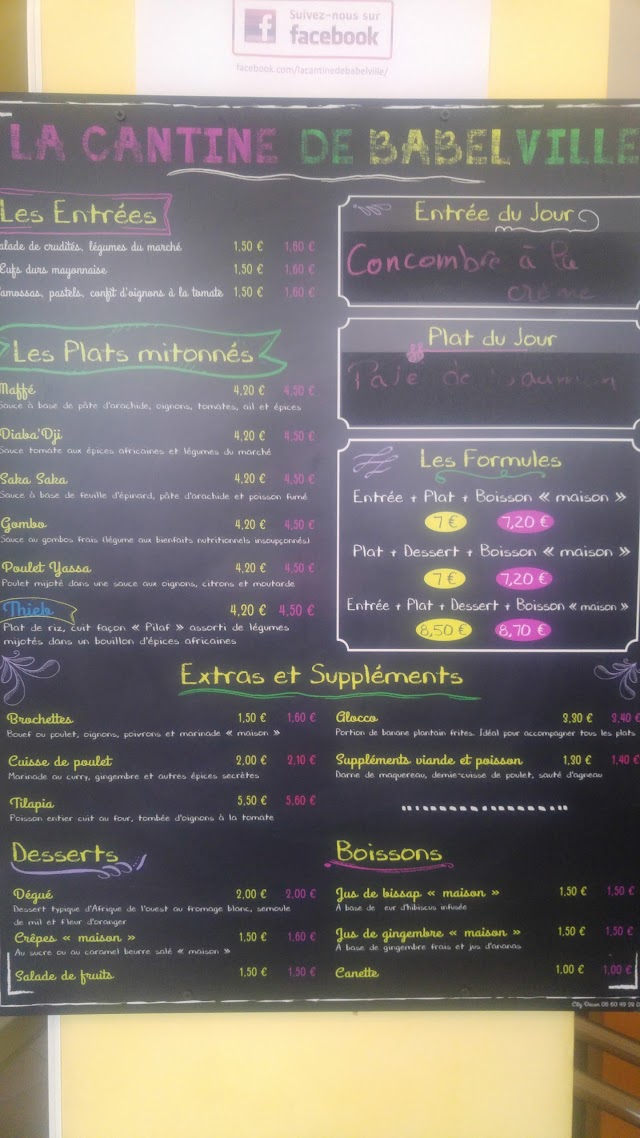 Suivez-nous sur
facebook
facebook.com/lacantinedebabelville/
LA CANTINE DE BABELVILLE
Les Entrées
alade de crudités, légumes du marché 1,50 € 1,60 €
Eufs durs mayonnaise 1,50 € 1,60 €
amossas, pastels, confit d'oignons à la tomate 1,50 € 1,60 €
Les Plats mitonnés
Maffé 4,20 € 4,50 €
Sauce à base de pâte d'arachide, oignons, tomates, ail et épices
Diaba'Dji 4,20 € 4,50 €
Sauce tomate aux épices africaines et légumes du marché
Saka Saka 4,20 € 4,50 €
Sauce à base de feuille d'épinard, pâte d'arachide et poisson fumé
Gombo 4,20 € 4,50 €
Sauce au gombos frais (légume aux bienfaits nutritionnels insoupçonnés)
Poulet Yassa 4,20 € 4,50 €
Poulet mijoté dans une sauce aux oignons, citrons et moutarde
Thieb 4,20 € 4,50 €
Plat de riz, cuit façon « Pilaf » assorti de légumes
mijotés dans un bouillon d'épices africaines
Entrée du Jour
Concombre à la
crème
Plat du Jour
de
Les Formules
Entrée + Plat + Boisson « maison »
7 € 7,20 €
Plat + Dessert + Boisson « maison »
7 € 7,20 €
Entrée + Plat + Dessert + Boisson « maison »
8,50 € 8,70 €
Extras et Suppléments
Brochettes 1,50 € 1,60 €
Bouef ou poulet, oignons, poivrons et marinade « maison »
Cuisse de poulet 2,00 € 2,10 €
Marinade au curry, gingembre et autres épices secrètes
Tilapia 5,50 € 5,60 €
Poisson entier cuit au four, tombée d'oignons à la tomate
Alocco 2,40 €
Portion de banane plantain frites. Idéal pour accompagner tous les plats
Suppléments viande et poisson 1,30 € 1,40 €
Darne de maquereau, demie-cuisse de poulet, sauté d'agneau
Desserts
Dégué 2,00 € 2,00 €
Dessert typique d'Afrique de l'ouest au fromage blanc, semoule
de mil et fleur d'oranger
Crêpes « maison » 1,50 € 1,60 €
Au sucre ou au caramel beurre salé « maison »
Salade de fruits 1,50 € 1,50 €
Boissons
Jus de bissap « maison » 1,50 € 1,50 €
A base de eur d'hibiscus infusée
Jus de gingembre « maison » 1,50 € 1,50 €
A base de gingembre frais et jus d'ananas
Canette 1,00 € 1,00 €